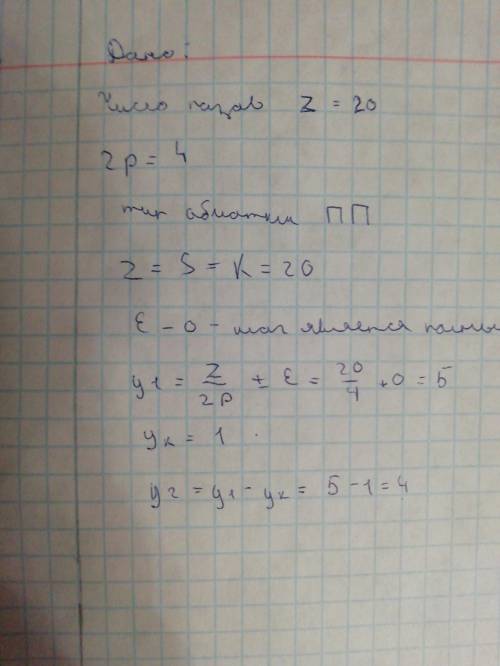 Дано:
Число пазов Z = 20
2p = 4
тип обмотки ПП
Z = S = K = 20
ε - 0 - шаг является полным
y1 = Z/2p ± ε = 20/4 + 0 = 5
yк = 1
y2 = y1 - yк = 5 - 1 = 4